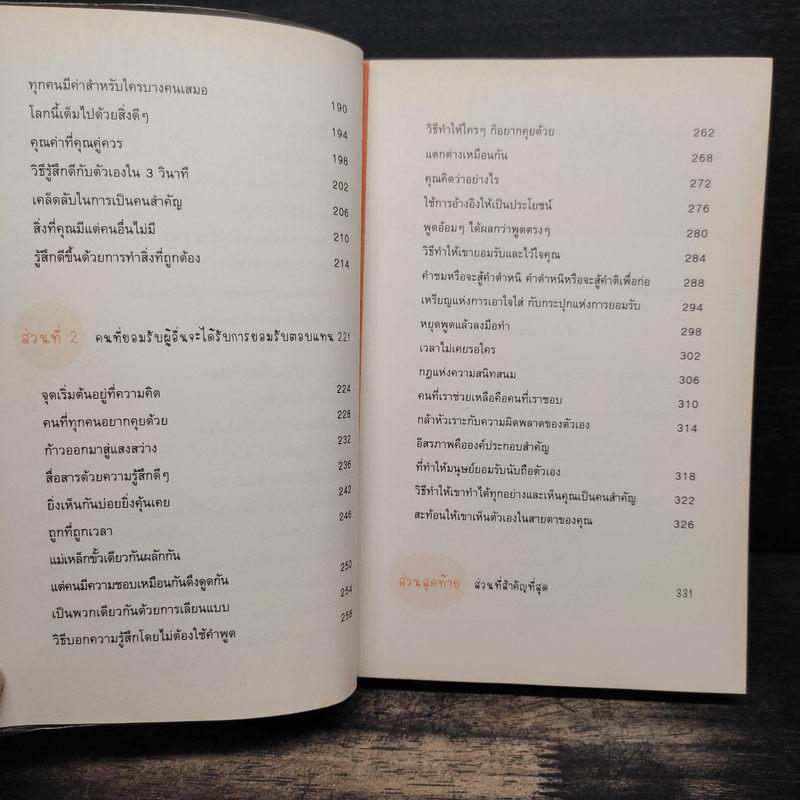 ทุกคนมีค่าสำหรับใครบางคนเสมอ 190
โลกนี้เต็มไปด้วยสิ่งดีๆ 194
คุณค่าที่คุณคู่ควร 198
วิธีรู้สึกดีกับตัวเองใน 3 วินาที 202
เคล็ดลับในการเป็นคนสำคัญ 206
สิ่งที่คุณมีแต่คนอื่นไม่มี 210
รู้สึกดีขึ้นด้วยการทำสิ่งที่ถูกต้อง 214
ส่วนที่ 2 คนที่ยอมรับผู้อื่นจะได้รับการยอมรับตอบแทน 221
จุดเริ่มต้นอยู่ที่ความคิด 224
คนที่ทุกคนอยากคุยด้วย 228
ก้าวออกมาสู่แสงสว่าง 232
สื่อสารด้วยความรู้สึกดีๆ 236
ยิ่งเห็นกันบ่อยยิ่งคุ้นเคย 242
ถูกที่ถูกเวลา 246
แม่เหล็กขั้วเดียวกันผลักกัน
แต่คนมีความชอบเหมือนกันดึงดูดกัน 250
เป็นพวกเดียวกันด้วยการเลียนแบบ 254
วิธีบอกความรู้สึกโดยไม่ต้องใช้คำพูด 258
วิธีทำให้ใครๆ ก็อยากคุยด้วย 262
แตกต่างเหมือนกัน 268
คุณคิดว่าอย่างไร 272
ใช้การอ้างอิงให้เป็นประโยชน์ 276
พูดอ้อมๆ ได้ผลกว่าพูดตรงๆ 280
วิธีทำให้เขายอมรับและไว้ใจคุณ 284
คำชมหรือจะสู้คำตำหนิ คำตำหนิหรือจะสู้คำติเพื่อก่อ 288
เหรียญแห่งการเอาใจใส่ กับกระปุกแห่งการยอมรับ 294
หยุดพูดแล้วลงมือทำ 298
เวลาไม่เคยรอใคร 302
กฎแห่งความสนิทสนม 306
คนที่เราช่วยเหลือคือคนที่เราชอบ 310
กล้าหัวเราะกับความผิดพลาดของตัวเอง 314
อิสรภาพคือองค์ประกอบสำคัญ
ที่ทำให้มนุษย์ยอมรับนับถือตัวเอง 318
วิธีทำให้เขาทำได้ทุกอย่างและเห็นคุณเป็นคนสำคัญ 322
สะท้อนให้เขาเห็นตัวเองในสายตาของคุณ 326
ส่วนสุดท้าย ส่วนที่สำคัญที่สุด 331